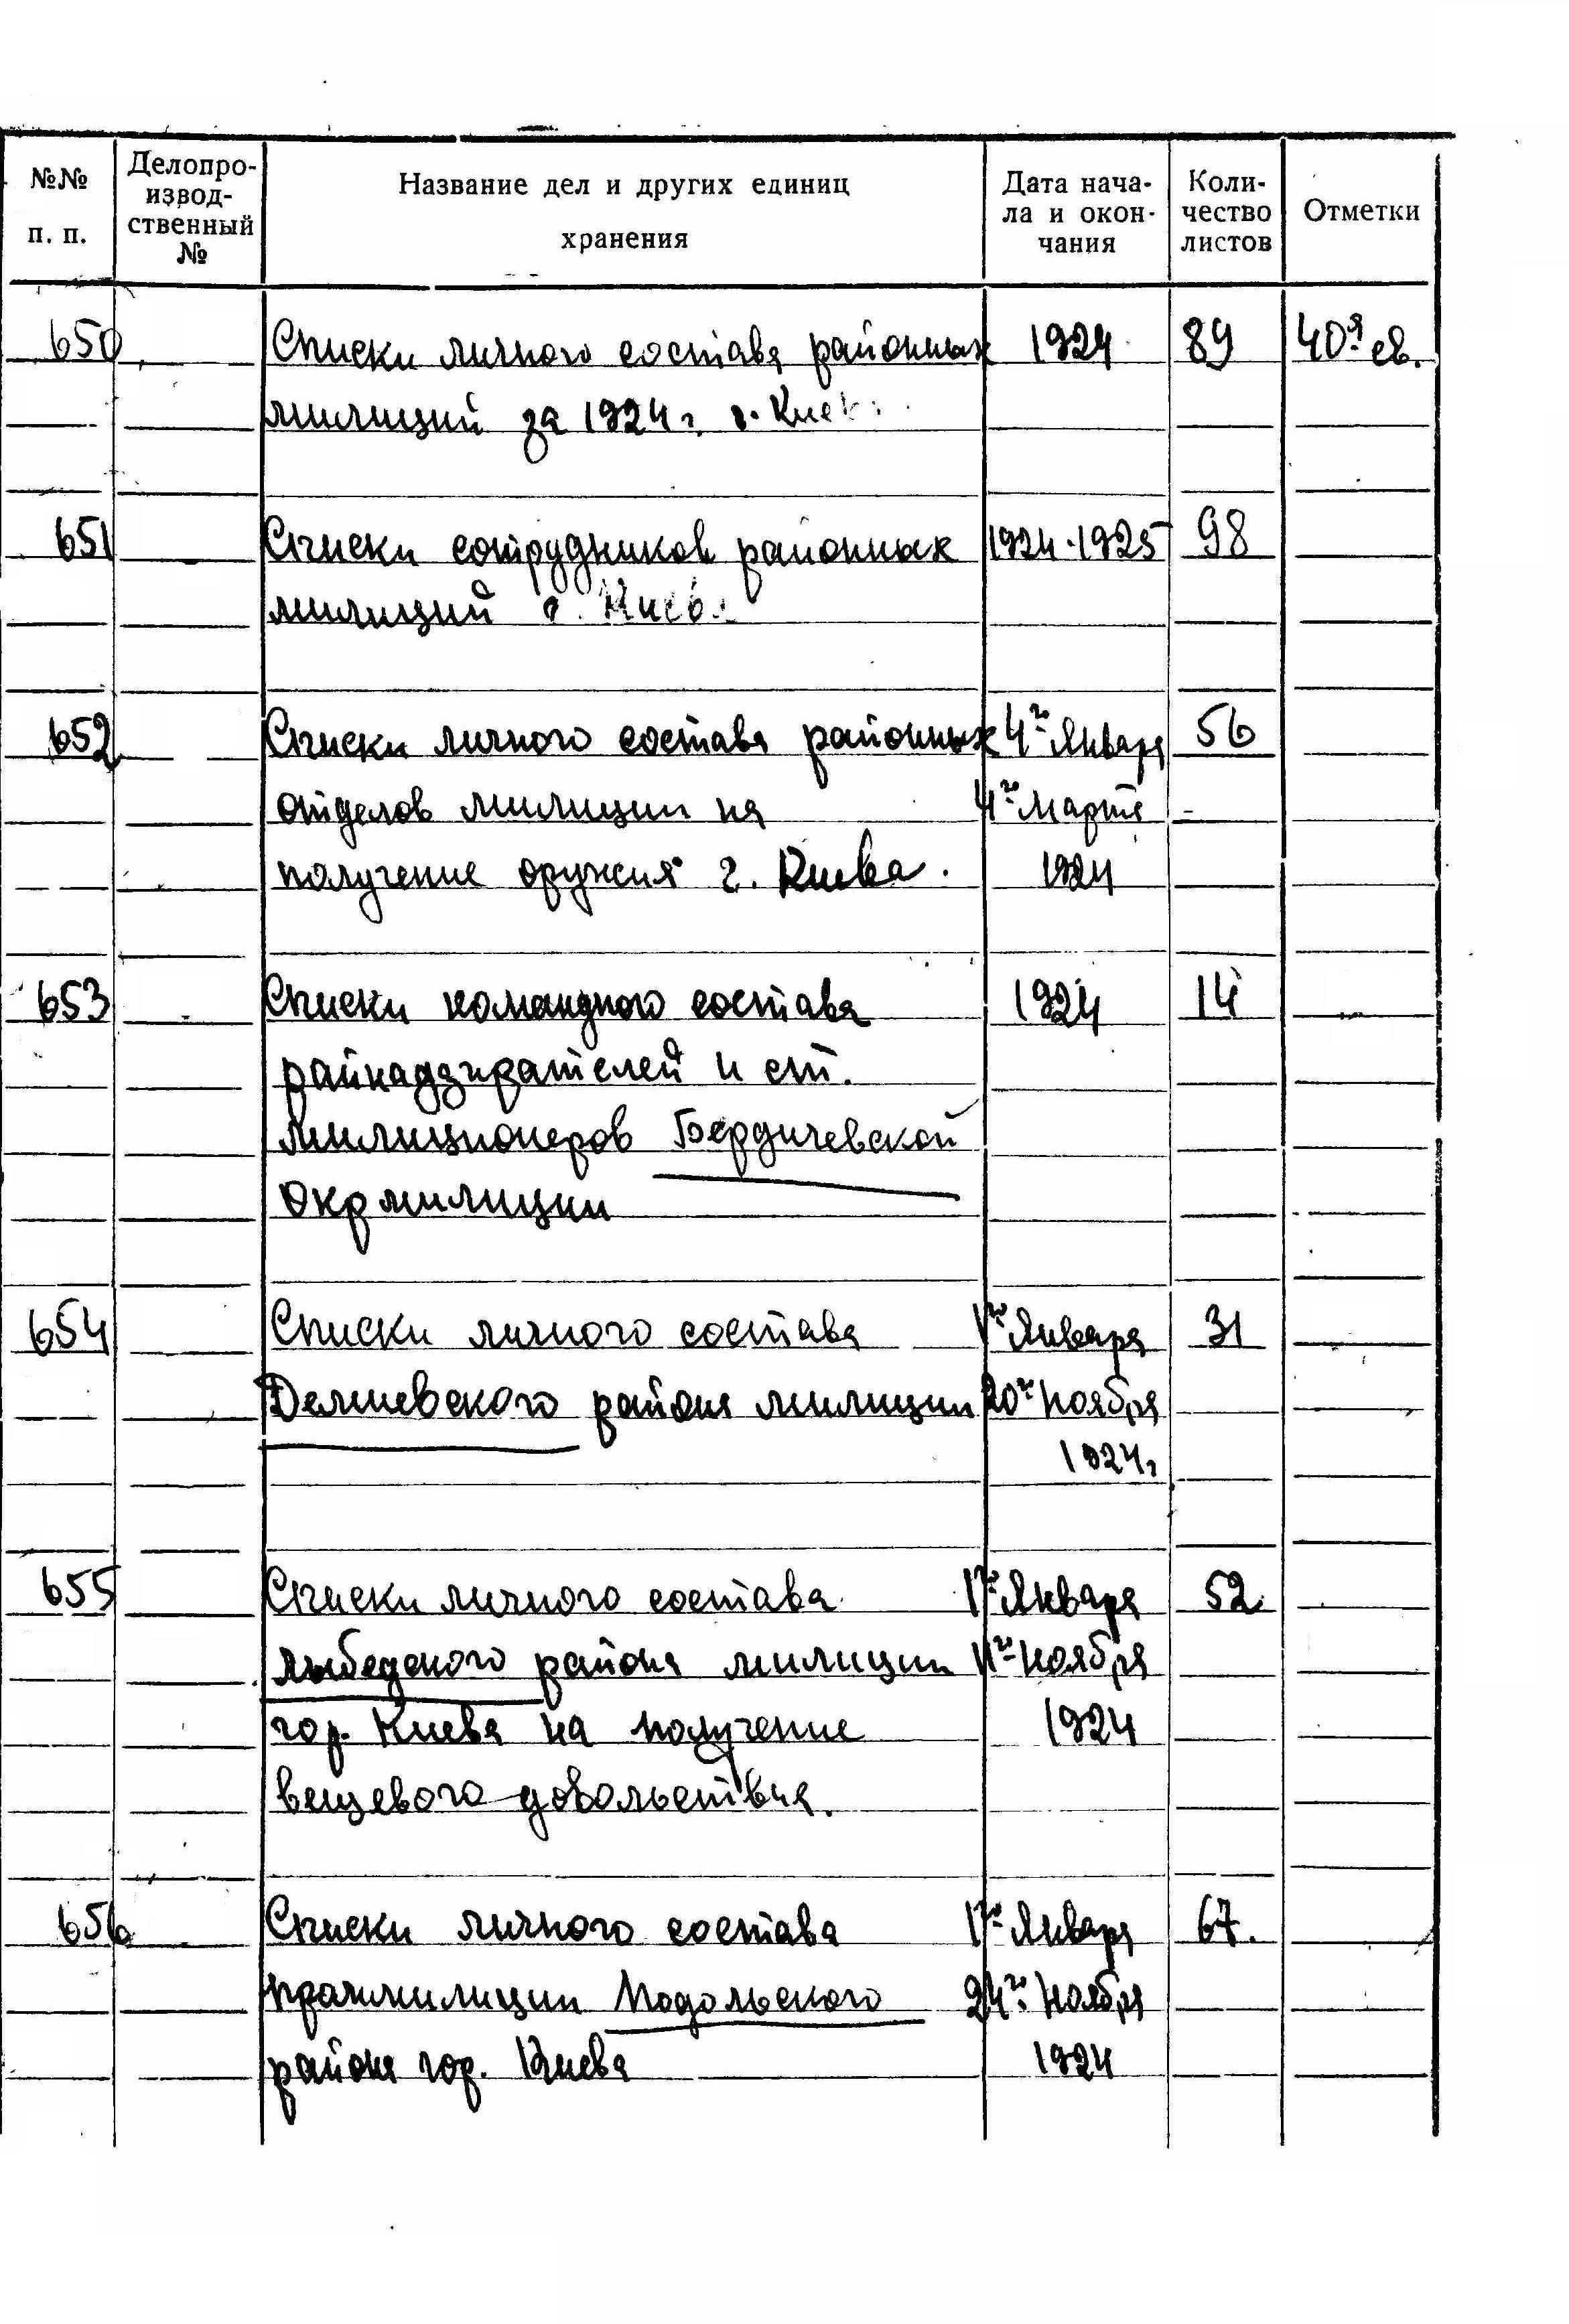 №№ п. п.
Делопро-
извод-
ственный
№
Название дел и других единиц
хранения
Дата нача-
ла и окон-
чания
Коли-
чество
листов
Отметки
650 Списки личного состава районных 1924 89
милиций за 1924 г. г. Киев
651 Списки сотрудников районных 1924-1925 98
милиций г. Киева
652 Списки личного состава районных 4го Января 56
отделов милиции на 4го Марта
получение оружия г. Киева. 1924
653 Списки командного состава 1924 14
райнадзирателей и ст.
милиционеров Бердичевской
Окрмилиции
654 Списки личного состава 1го Января 31
Демиевского района милиции 20го Ноября
1924 г
655 Списки личного состава 1го Января 52
Лыбедского района милиции 11го Ноября
гор. Киева на получение 1924
вещевого довольствия.
656 Списки личного состава 1го Января 67.
Подольского 24го Ноября
района гор. Киева 1924